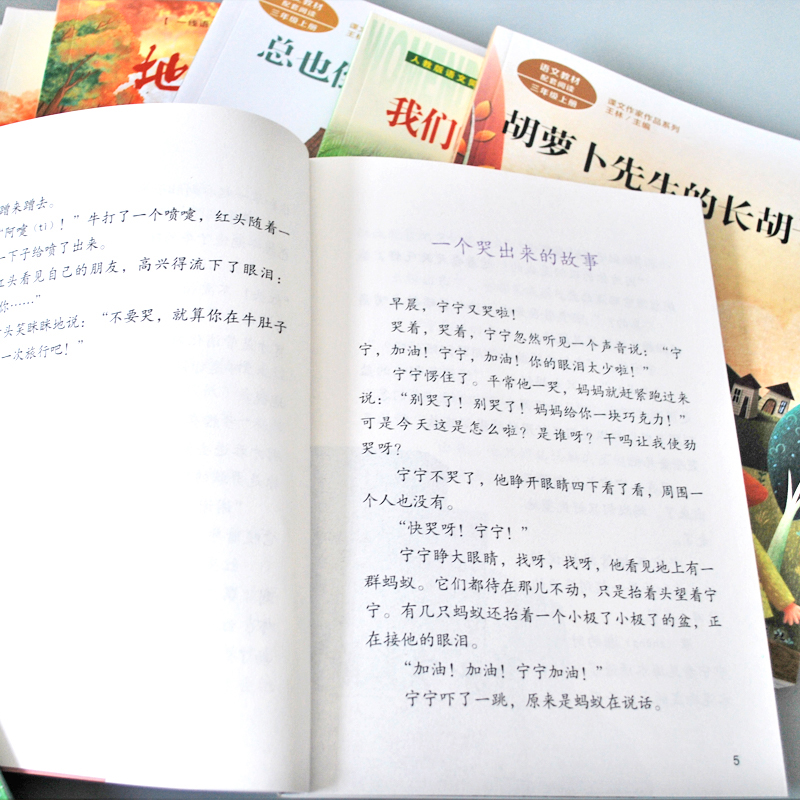 一线语
地
语文教材
配套阅读
三年级上册
总也
人教版语文
我们
语文教材
配套阅读
三年级上册
课文作家作品系列
王林/主编
胡萝卜先生的长胡
蹭来蹭去。
“阿嚏（tì）！”牛打了一个喷嚏，红头随着一
下子给喷了出来。
红头看见自己的朋友，高兴得流下了眼泪：
你……”
头笑眯眯地说：“不要哭，就算你在牛肚子
一次旅行吧！”
一个哭出来的故事
早晨，宁宁又哭啦！
哭着，哭着，宁宁忽然听见一个声音说：“宁
宁，加油！宁宁，加油！你的眼泪太少啦！”
宁宁愣住了。平常他一哭，妈妈就赶紧跑过来
说：“别哭了！别哭了！妈妈给你一块巧克力！”
可是今天这是怎么啦？是谁呀？干吗让我使劲
哭呀？
宁宁不哭了，他睁开眼睛四下看了看，周围一
个人也没有。
“快哭呀！宁宁！”
宁宁睁大眼睛，找呀，找呀，他看见地上有一
群蚂蚁。它们都待在那儿不动，只是抬着头望着宁
宁。有几只蚂蚁还抬着一个小极了小极了的盆，正
在接他的眼泪。
“加油！加油！宁宁加油！”
宁宁吓了一跳，原来是蚂蚁在说话。
5